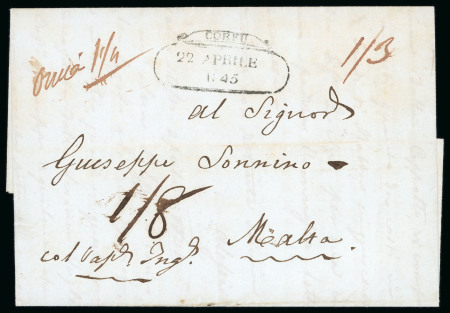 CORFU
22 APRILE
1845
oncia 1/4
1/3
Al Signor
Giuseppe Sonnino
1/8
col Vap. Ingl.
Malta.